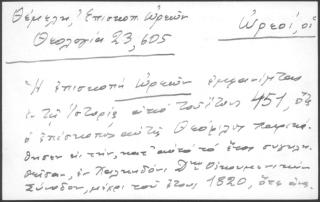 Θέμελη, Ἐπισκοπ Ὠρεῶν
Ὠρεοί, οἱ
Θεολογία 23, 605
Ἡ ἐπισκοπή Ὠρεῶν ἐμφανίζεται
ἐν τῇ Ἱστορίᾳ ἀπό τοῦ ἔτους 451, ὅτε
ὁ ἐπίσκοπος αὐτῆς Θεόφιλος παρεκά-
θησεν εἰς τήν, κατ' αὐτό τό ἔτος συγκλη-
θεῖσαν, ἐν Χαλκηδόνι Δην Οἰκουμενικήν
Σύνοδον, μέχρι τοῦ ἔτους 1820, ὅτε